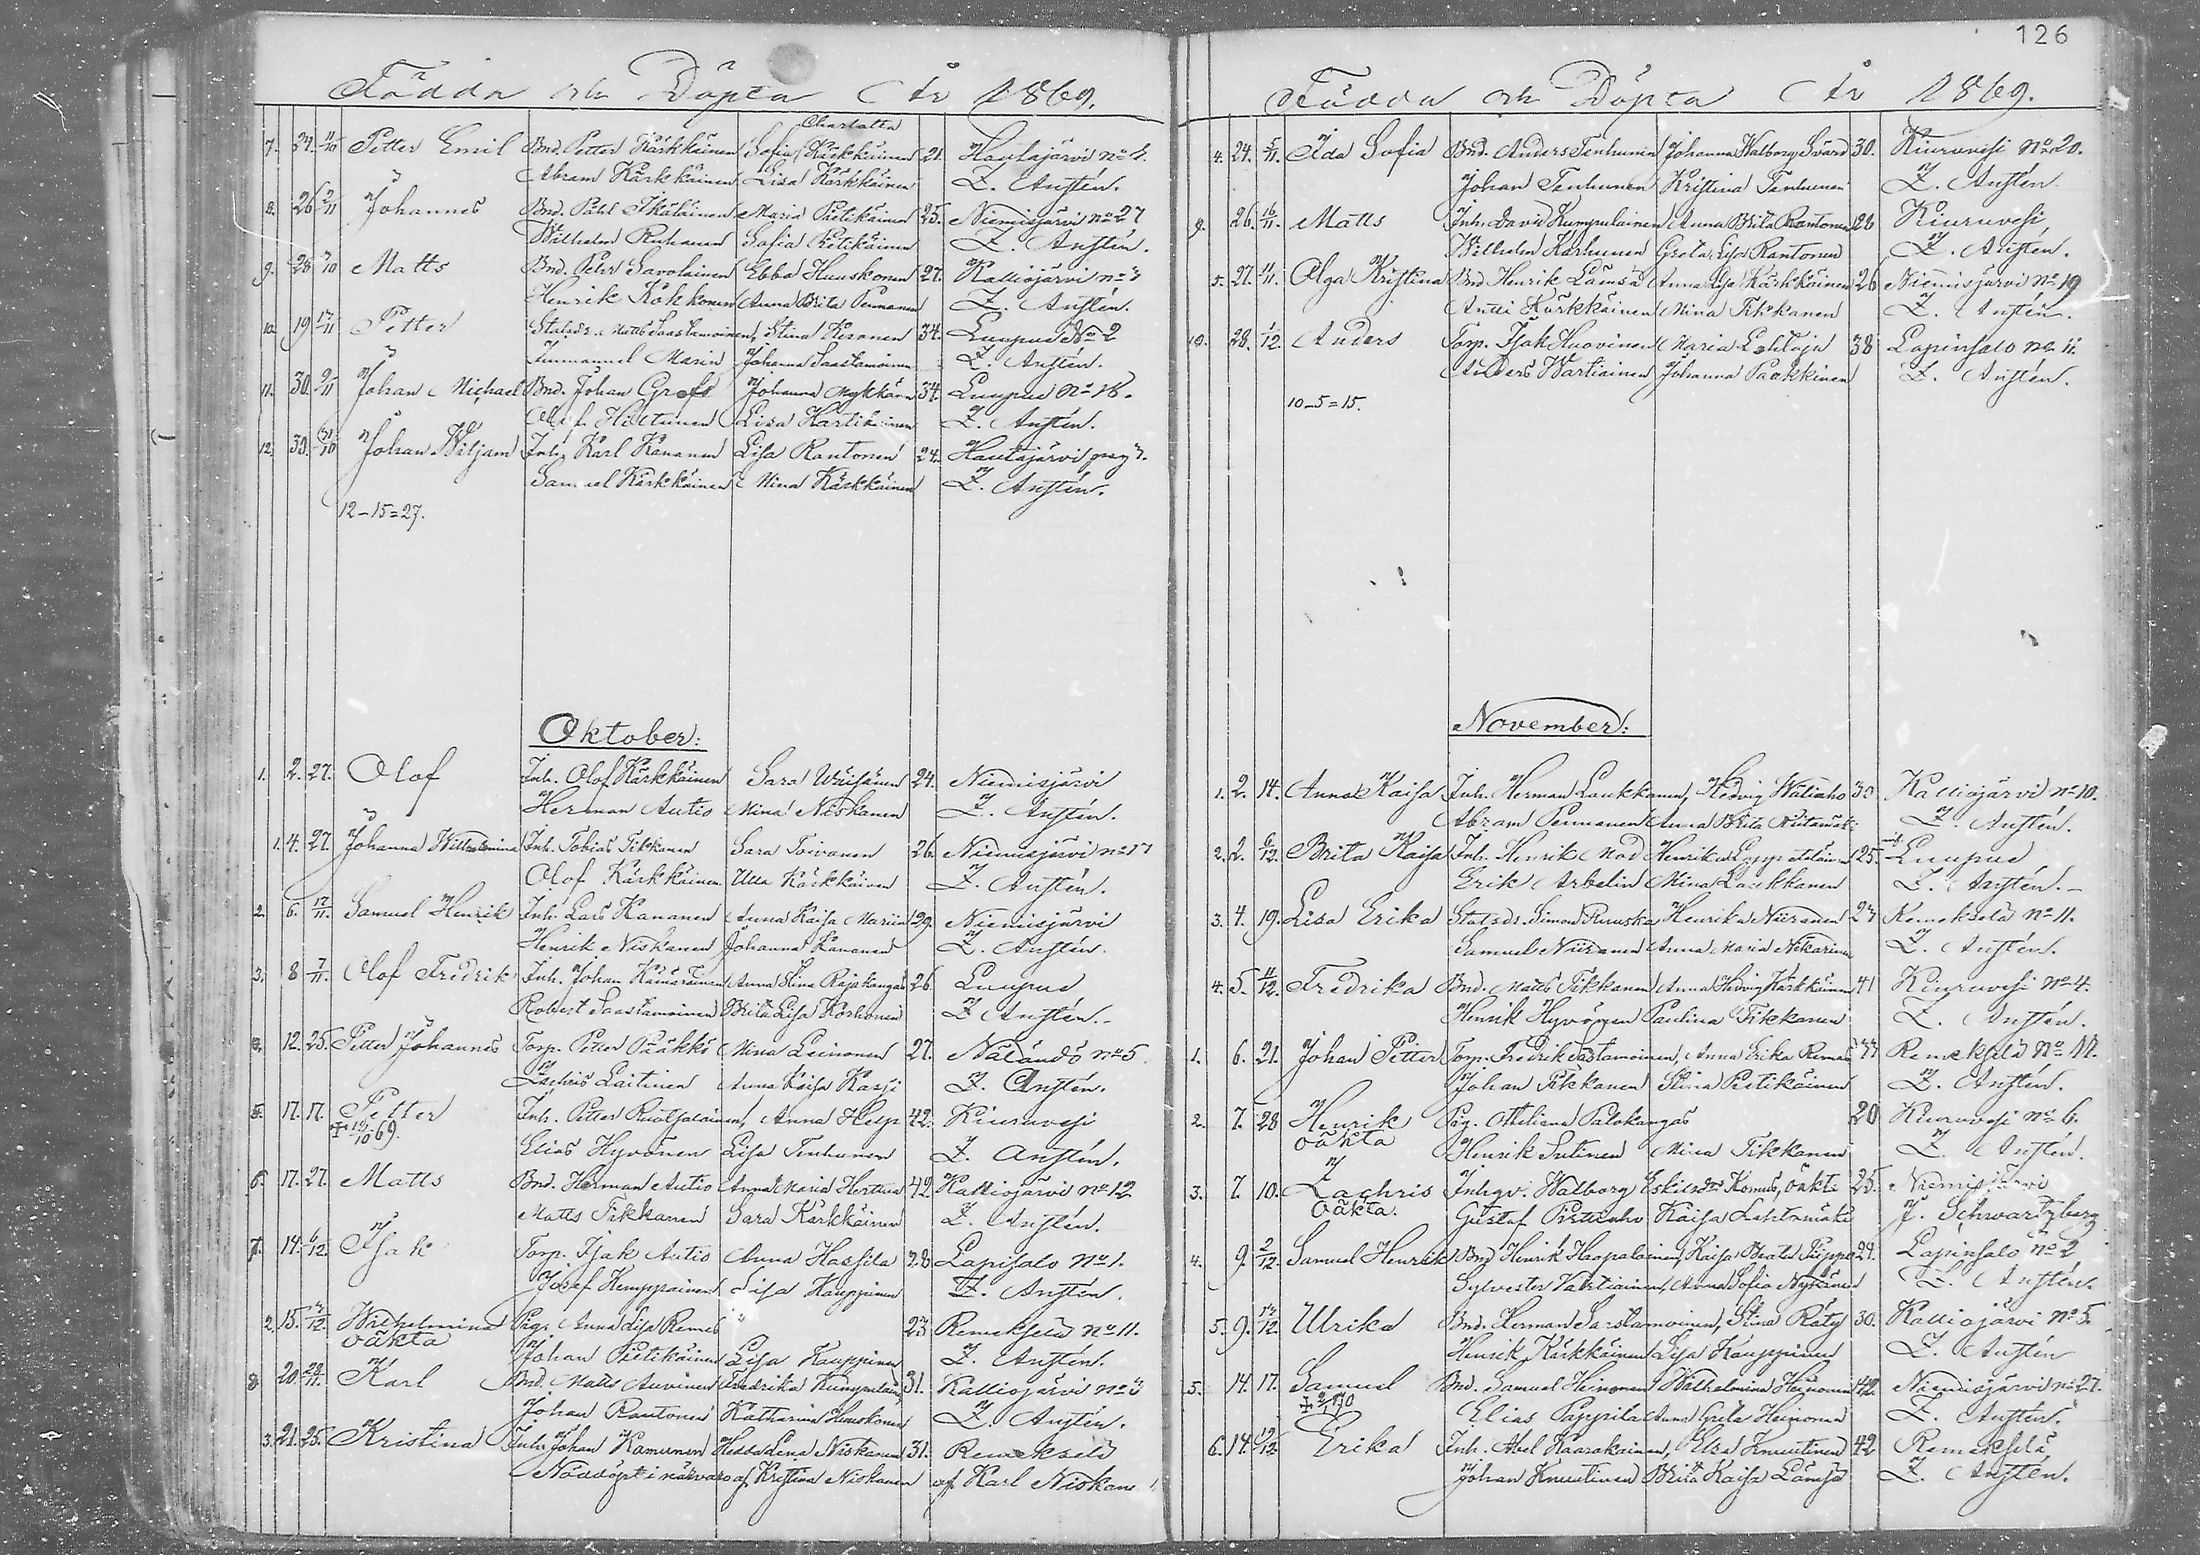 Födda och Döpta År 1869.
Charlotta
7. 24. 11/10 Petter Emil Bnd. Petter Kärkkäinen Sofia Kärkkäinen 21. Hautajärvi no 4.
Abram Kärkkäinen Lisa Kärkkäinen Z. Anstén.
8. 26 2/11 Johannes Bnd. Påhl Ikäläinen Maria Pietikäinen 25. Niemisjärvi no 27
Wilhelm Ruhanen Sofia Pietikäinen Z. Anstén.
9. 28 Matts Bnd. Peter Savolainen Ebba Huuskonen 27. Kalliojärvi no 3
Henrik Kokkonen Anna Brita Pennanen Z. Anstén.
10. 19 17/11 Petter Statsdr. Matts Saastamoinen, Stina Kesonen 34. Luupus No 2
Immanuel Marin Johanna Saastamoinen Z. Anstén.
11. 30. 9/11 Johan Michael Bnd. Johan Grofs Johanna Mykkänen 34. Luupus No 18.
Olof Hiltunen Lisa Kärkkäinen Z. Anstén.
12. 30. 31/10 Johan Wiljam Inh. Karl Kananen Lisa Rantonen 24. Hautajärvi
Samuel Kärkkäinen Mina Kärkkäinen Z. Anstén.
12-15=27.
Oktober:
1. 2. 27. Olof Inh. Olof Kärkkäinen Sara Wäisänen 24. Niemisjärvi
Herman Autio Mina Niskanen Z. Anstén.
1. 4. 27. Johanna Wilhelmina Inh. Tobias Tikkanen Sara Toivanen 26. Niemisjärvi no 17
Olof Kärkkäinen Ulla Kärkkäinen Z. Anstén.
2. 6. 17/11. Samuel Henrik Inh. Lars Kananen Anna Kaisa Mariin 29. Niemisjärvi
Henrik Niskanen Johanna Kananen Z. Anstén.
3. 8 7/11. Olof Fredrik Inh. Johan Kämäräinen Anna Stina Rajakangas 26. Luupus
Robert Saastamoinen Brita Lisa Korhonen Z Anstén.
12. 25. Petter Johannes Torp. Petter Pääkkö Mina Leinonen 27. Näländö no 5.
Zachris Laitinen Anna Kaisa Karsi Z. Anstén.
5. 17. 17. Petter Inh. Petter Ruotsalainen, Anna Help 42. Kiuruvesi
† 19/10 69. Elias Hyvönen Lisa Tenhunen Z. Anstén.
6. 17. 27. Matts Bnd. Herman Autio Anna Maria Herttua 42 Kalliojärvi no 12
Matts Tikkanen Sara Kärkkäinen Z. Anstén.
7. 14. 6/12. Isak Torp. Isak Autio Anna Hassila 28 Lapisalo No 1.
Josef Kemppainen Lisa Kauppinen Z. Anstén.
2. 15. Wilhelmina Pig. Anna Lisa Remes 23 Remekselä No 11.
oäkta Johan Pietikäinen Lisa Kauppinen Z. Anstén.
8. 20. 28/11. Karl Bnd. Matts Auvinen Fredrika Kumpulainen 31. Kalliojärvi no 3
Johan Rantonen Katharina Huuskonen Z. Anstén.
3. 21. 25. Kristina Inh. Johan Kamunen Hedda Lena Niskanen 31. Remekselä
Nöddöpt i närvaro af Kristina Niskanen af Karl Niskanen
126
Födda och Döpta År 1869.
4. 24. 5/11. Ida Sofia Bnd. Anders Tenhunen Johanna Walborg Svärd 30. Kiuruvesi No 20.
Johan Tenhunen Kristina Tenhunen Z. Anstén.
9. 26. 16/11. Matts Inh. David Kumpulainen Anna Brita Rantonen 26 Kiuruvesi
Wilhelm Karhunen Greta Lisa Rantonen Z. Anstén.
5. 27. 11. Olga Kristina Bnd Henrik Lämsä Anna Lisa Kärkkäinen 26 Niemisjärvi No 19
Antti Kärkkäinen Mina Tikkanen Z. Anstén.
10. 28. 1/12. Anders Torp. Isak Huovinen Maria Lehtoja 38 Lapinsalo no 11.
Anders Wartiainen Johanna Paakkinen Z. Anstén.
10-5=15.
November:
1. 2. 14. Anna Kaisa Inh. Herman Laukkanen, Hedvig Wäliaho 30 Kalliojärvi no 10.
Abram Pennanen Anna Brita Z. Anstén.
2. 2. 6/12. Brita Kaisa Inh. Henrik Mod Henrika 25. Luupus
Erik Arbelin Mina Laukkanen Z. Anstén.
3. 4. 19. Lisa Erika Statsdr. Simon Ruuska Henrika Niiranen 27 Remekselä no 11.
Samuel Niiranen Anna Maria Nikarinen Z. Anstén.
4. 5. 11/12. Fredrika Bnd. Matts Tikkanen Anna Hedvig Kärkkäinen 41 Kiuruvesi no 4.
Henrik Hyvönen Paulina Tikkanen Z. Anstén.
1. 6. 21. Johan Petter Torp. Fredrik Saastamoinen, Anna Erika Remes Remekselä No 14.
Johan Tikkanen Stina Pietikäinen Z. Anstén.
2. 7. 28 Henrik Pig. Otteliana Palokangas 20 Kiuruvesi no 6.
oäkta Henrik Sutinen Mina Tikkanen Z. Anstén.
3. 7. 10. Zachris Inhqv. Walborg Eskilsdr Komus, oäkta 25. Niemisjärvi
Oäkta. Gustaf Pirttiaho Kaisa Lahtomäki J. Schwartzberg
4. 9. 2/12. Samuel Henrik Bnd Henrik Haapalainen, Kaisa Beata Piippo 29. Lapinsalo No 2
Sylvester Vartiainen, Anna Sofia Nykänen Z. Anstén.
5. 9. 13/12. Ulrika Bnd. Herman Saastamoinen, Stina Räty 30. Kalliojärvi No 5.
Henrik Kärkkäinen Lisa Kauppinen Z. Anstén
5. 14. 17. Samuel Bnd. Samuel Heinonen Wilhelmina Heinonen 42 Niemisjärvi no 27.
Elias Pappila Anna Greta Heinonen Z. Anstén.
6. 14. Erika Inh. Abel Kaarakainen, Elsa Knuutinen 42 Remekselä
Johan Knuutinen Brita Kaisa Lämsä Z. Anstén.